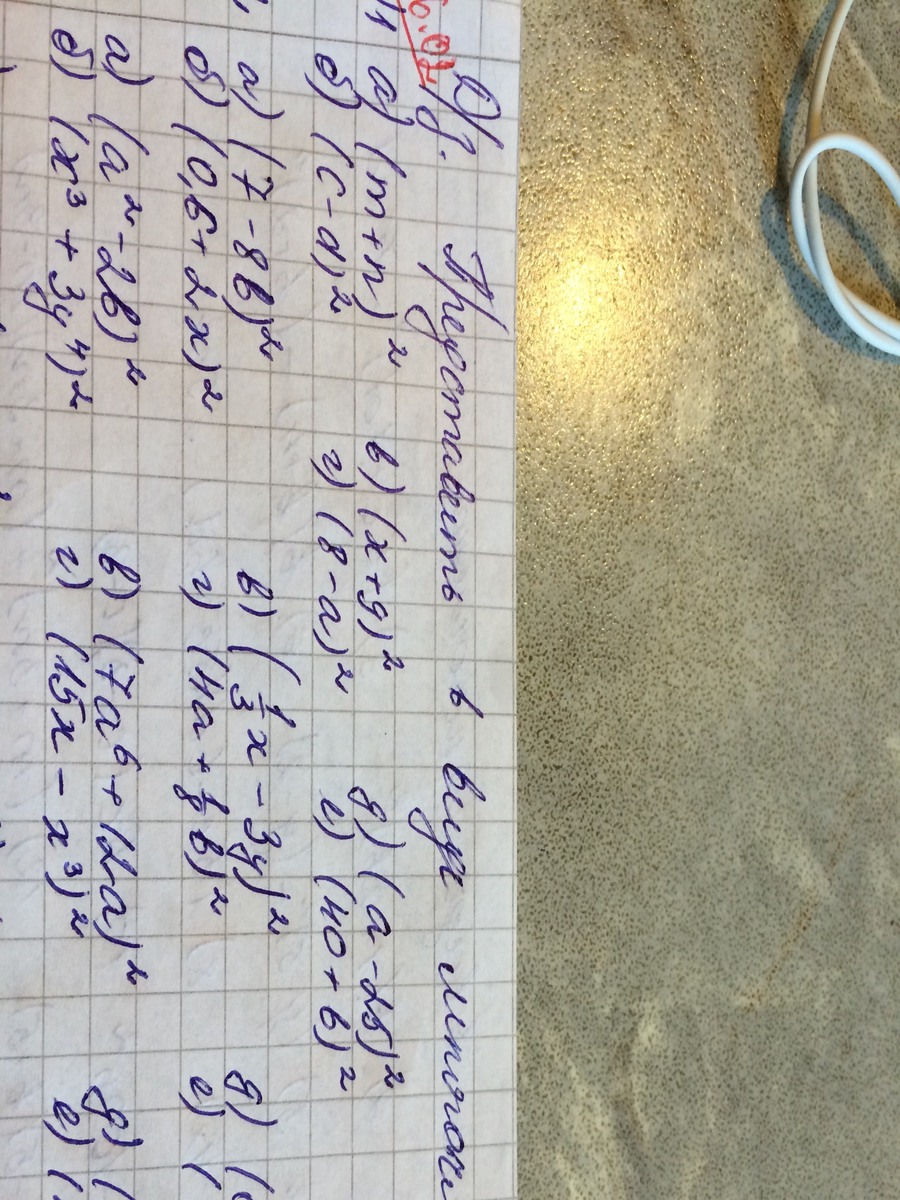 Д/з. Представить в виде многочл
а) (m+n)² в) (x+9)² д) (a-25)²
б) (c-d)² г) (8-a)² е) (40+b)²
а) (7-8b)² в) (1/3x-3y)² д) (
б) (0,6+2x)² г) (4a+1/8b)² е) (
а) (a²-2b)² в) (7a⁶+12a)² д) (
б) (x³+3y⁴)² г) (15x-x³)² е) (